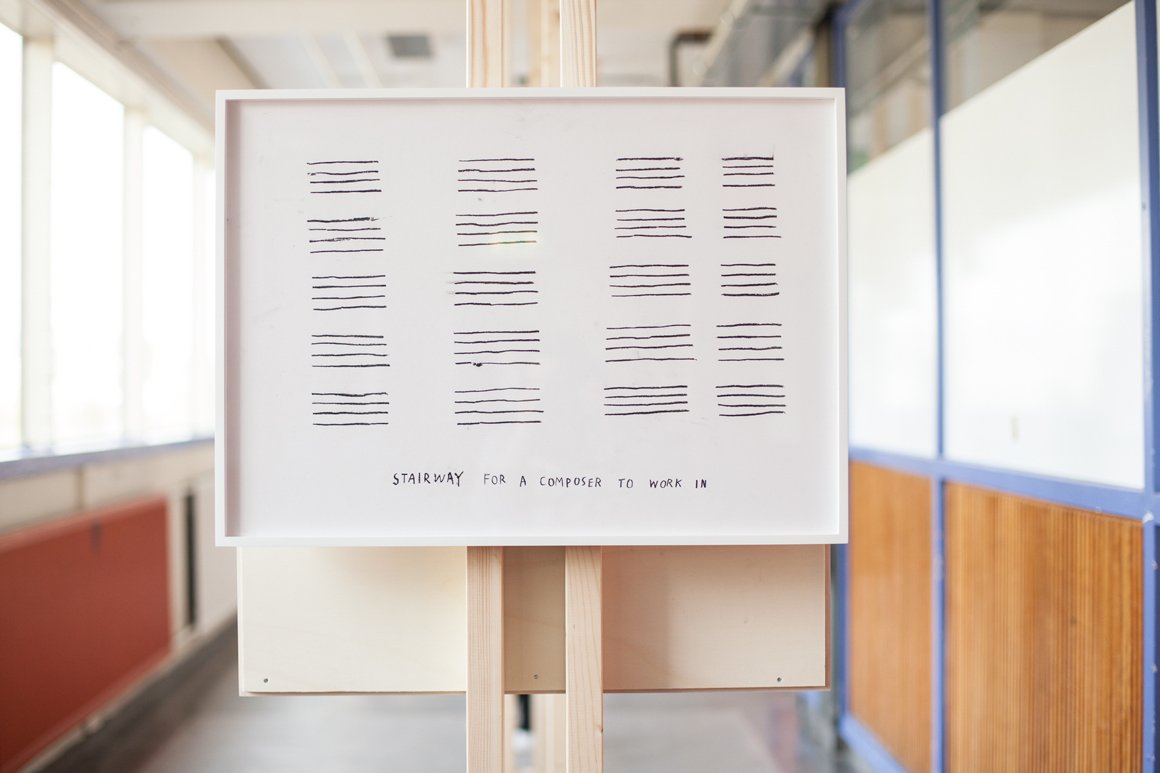 STAIRWAY FOR A COMPOSER TO WORK IN